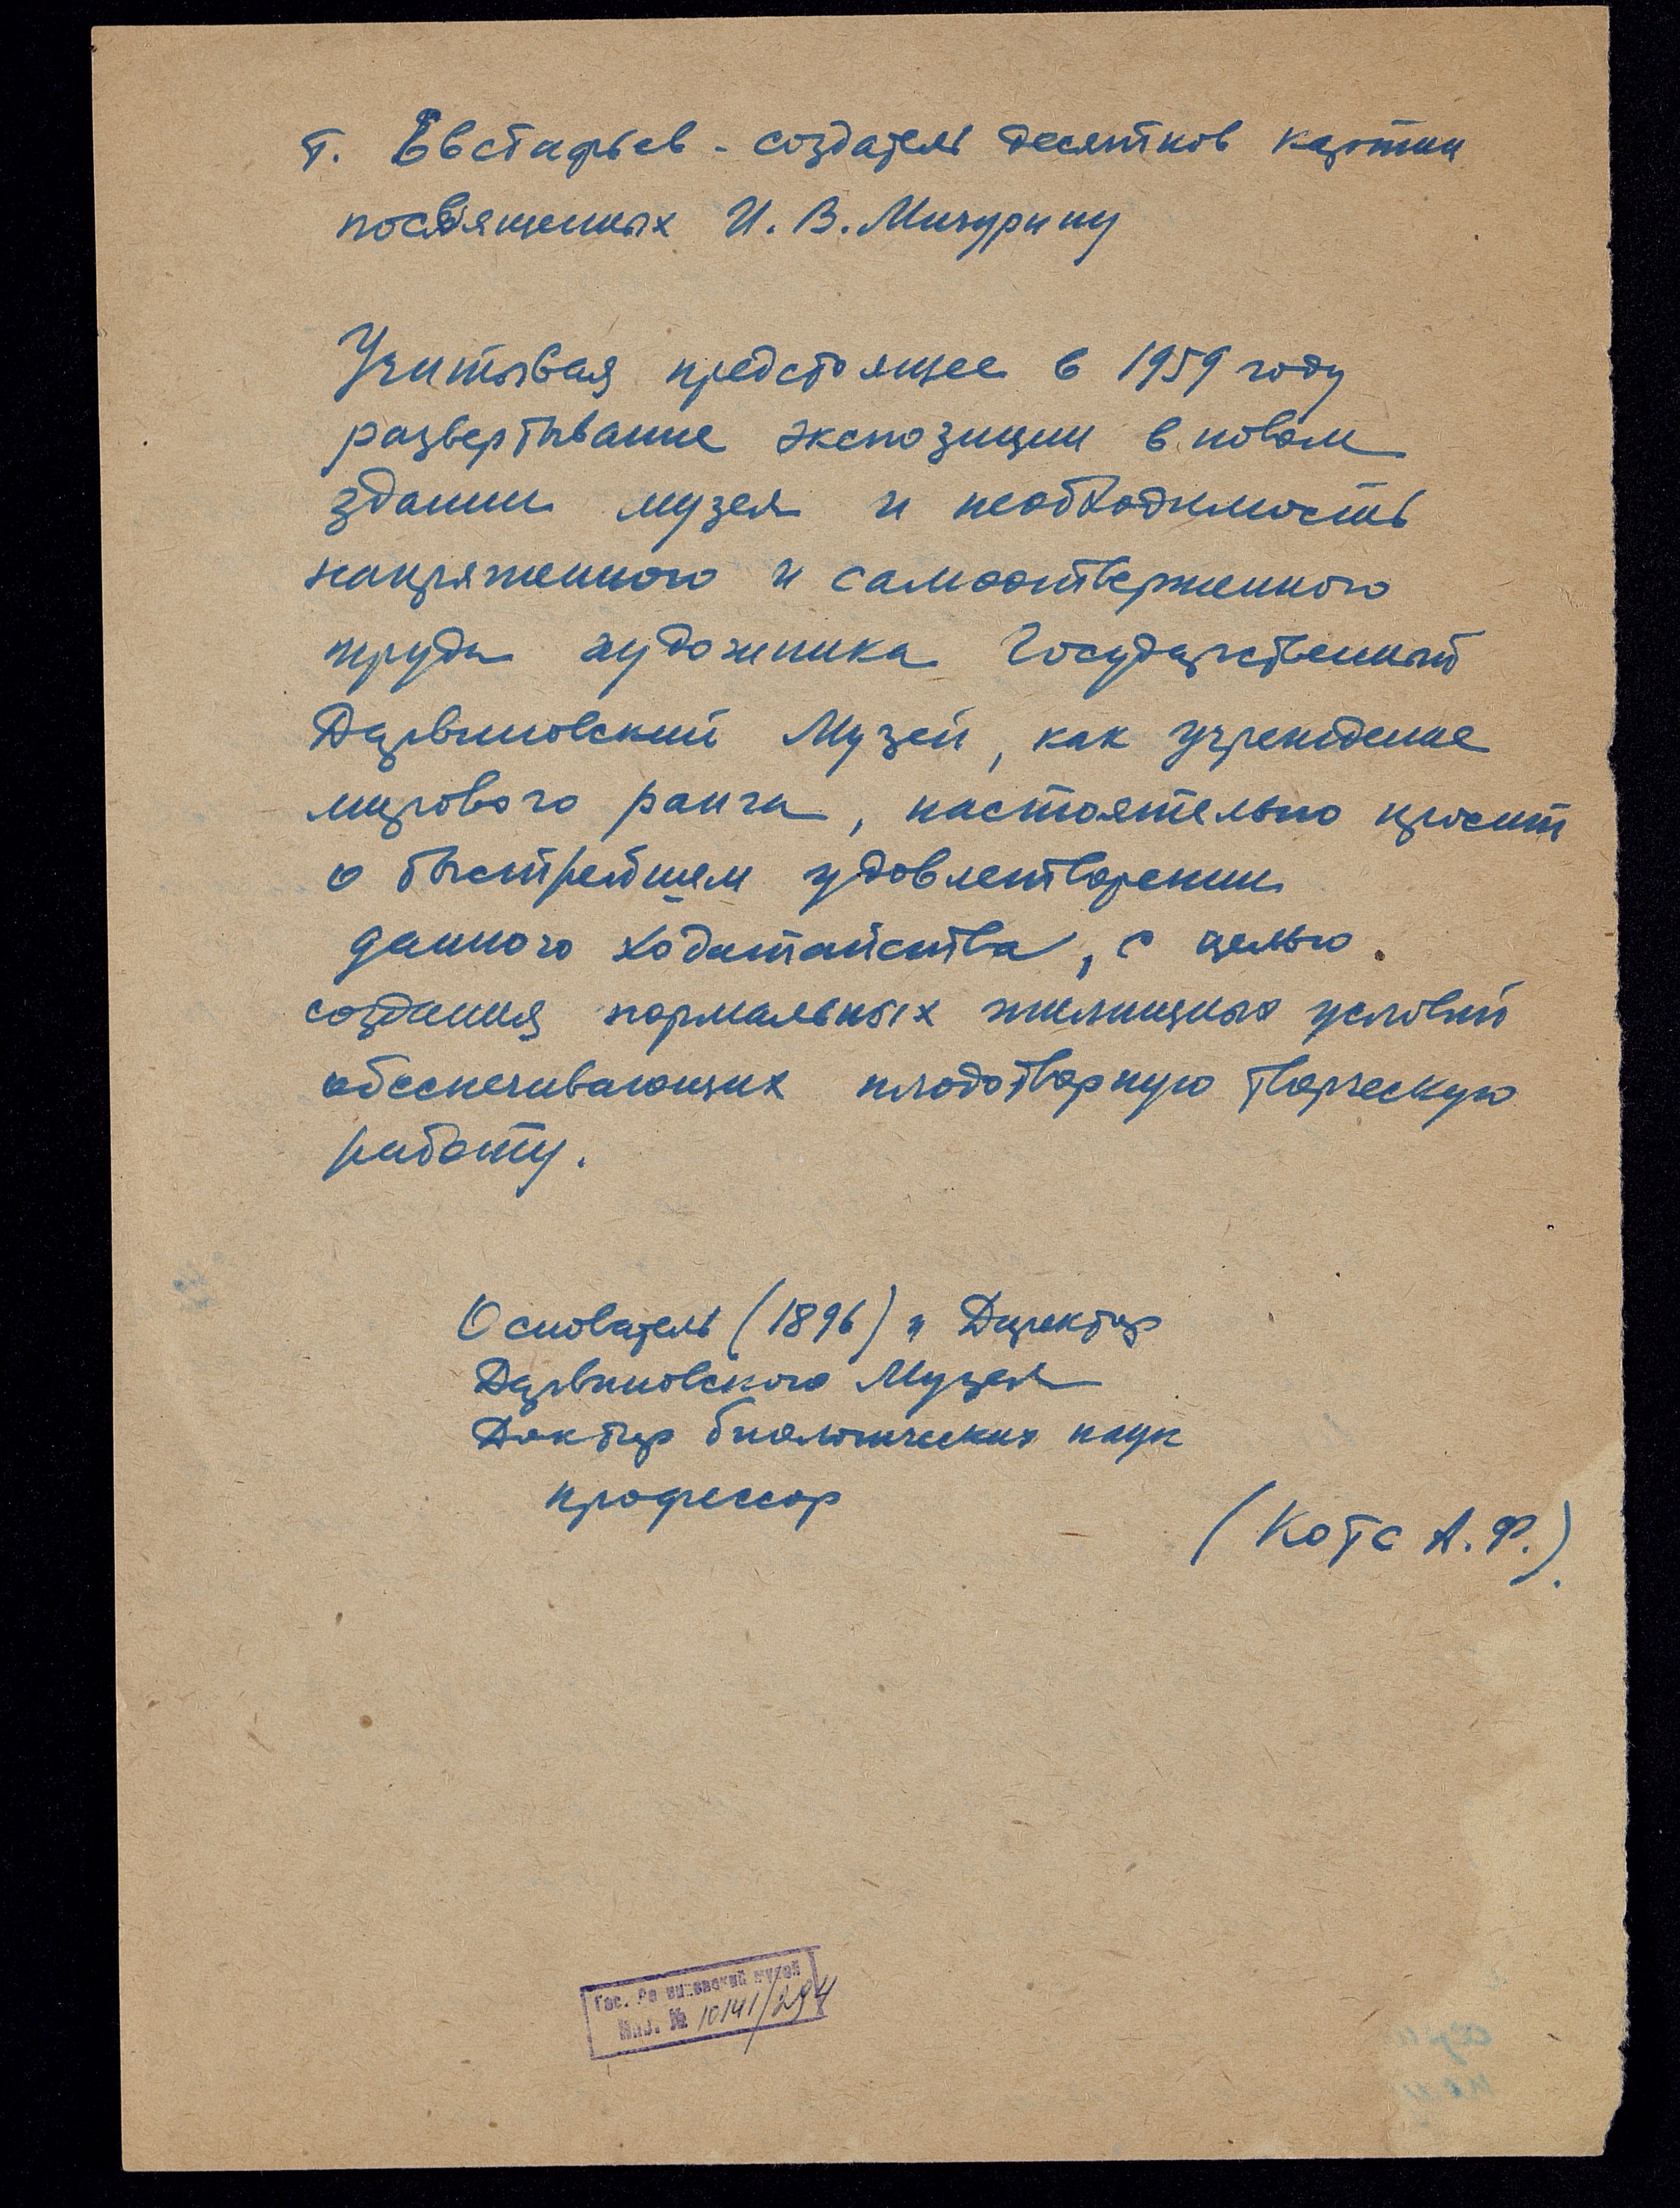 т. Евстафьев - создатель десятков картин
посвященных И. В. Мичурину
Учитывая предстоящее в 1959 году
развертывание экспозиции в новом
здании музея и необходимость
напряженного и самоотверженного
труда художника Государственный
Дарвиновский Музей, как учреждение
мирового ранга, настоятельно просит
о быстрейшем удовлетворении
данного ходатайства, с целью
создания нормальных жилищных условий
обеспечивающих плодотворную творческую
работу.
Основатель (1896) и Директор
Дарвиновского Музея
Доктор биологических наук
профессор
(Котс А. Ф.)
Гос. Дарвиновский музей
Инв. № 10141/294